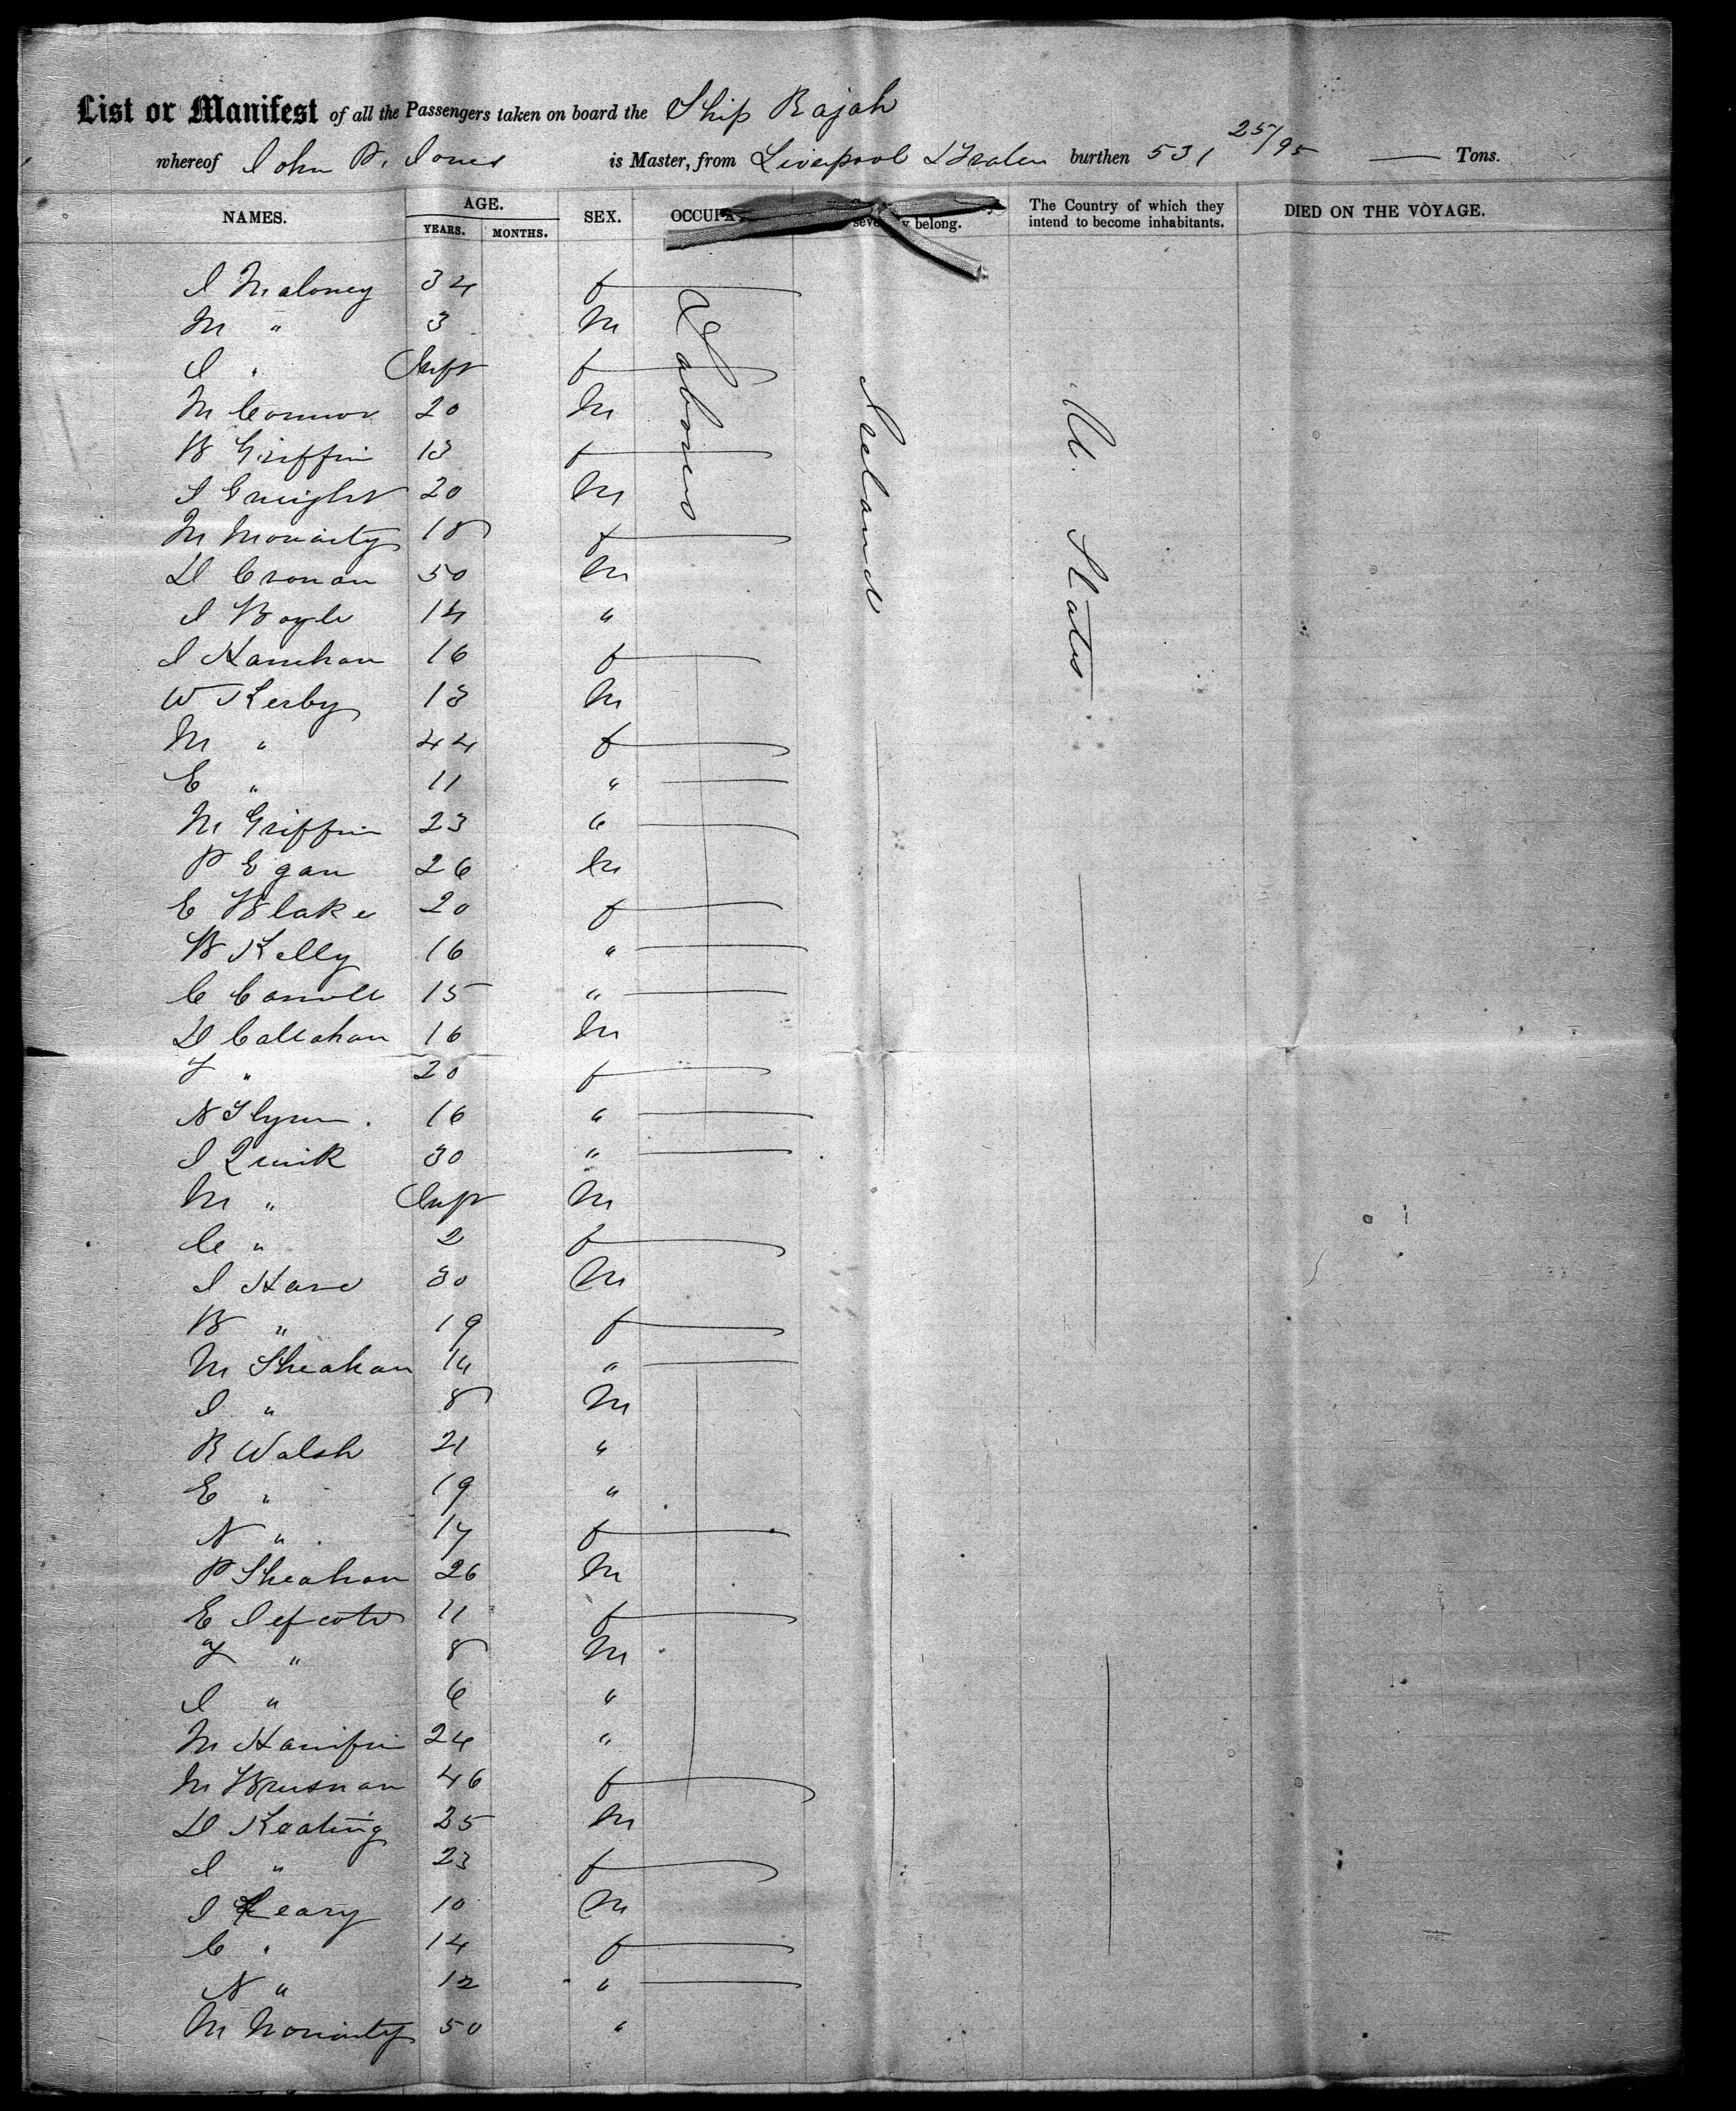 List or Manifest of all the Passengers taken on board the Ship Rajah
whereof John P. Jones is Master, from Liverpool & Tralee burthen 531 25/95 — Tons.
NAMES. AGE. YEARS. MONTHS. SEX. belong. The Country of which they intend to become inhabitants. DIED ON THE VOYAGE.
Laborers
Ireland
U. States
I Maloney 34 f
M " 3 M
I " Inft f
M Connor 20 M
B Griffin 13 f
20 M
M Moriarty 18 f
D Cronan 50 M
I Boyle 14 "
I Hanihan 16 f
W Kerby 13 M
M " 44 f
E " 11 "
M Griffin 23 "
P Egan 26 M
E Blake 20 f
B Kelly 16 "
C Carroll 15 "
D Callahan 16 M
" 20 f
N Flynn 16 "
I Quirk 30 "
M " Inft M
C " 2 f
I Hare 30 M
B " 19 f
M Sheahan 14 "
I " 8 M
R Walsh 21 "
E " 19 "
N " 17 f
P Sheahan 26 M
E 11 f
" 8 M
I " 6 "
M Hanifin 24 "
M Brusnan 46 f
D Keating 25 M
I " 23 f
I Leary 10 M
C " 14 f
N " 12 "
M Moriarty 50 "